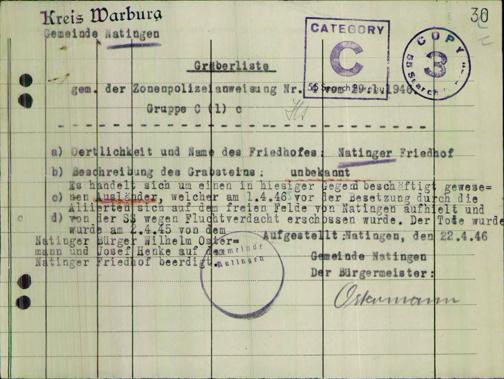 30
Kreis Warburg
Gemeinde Natingen
CATEGORY
C
COPY
3
Gräberliste
gem. der Zonenpolizeianweisung Nr. vom 29.1.1946
Gruppe C (1) c
a) Oertlichkeit und Name des Friedhofes: Natinger Friedhof
b) Beschreibung des Grabsteins: unbekannt
Es handelt sich um einen in hiesiger Gegend beschäftigt gewese=
c) nen Ausländer, welcher am 1.4.45 vor der Besetzung durch die
Alliierten sich auf dem freien Felde von Natingen aufhielt und
d) von der SS wegen Fluchtverdacht erschossen wurde. Der Tote wurde
wurde am 2.4.45 von dem
Natinger Bürger Wilhelm Oster=
mann und Josef Henke auf dem
Natinger Friedhof beerdigt.
Aufgestellt: Natingen, den 22.4.46
Gemeinde Natingen
Der Bürgermeister:
Ostermann
Gemeinde
Natingen